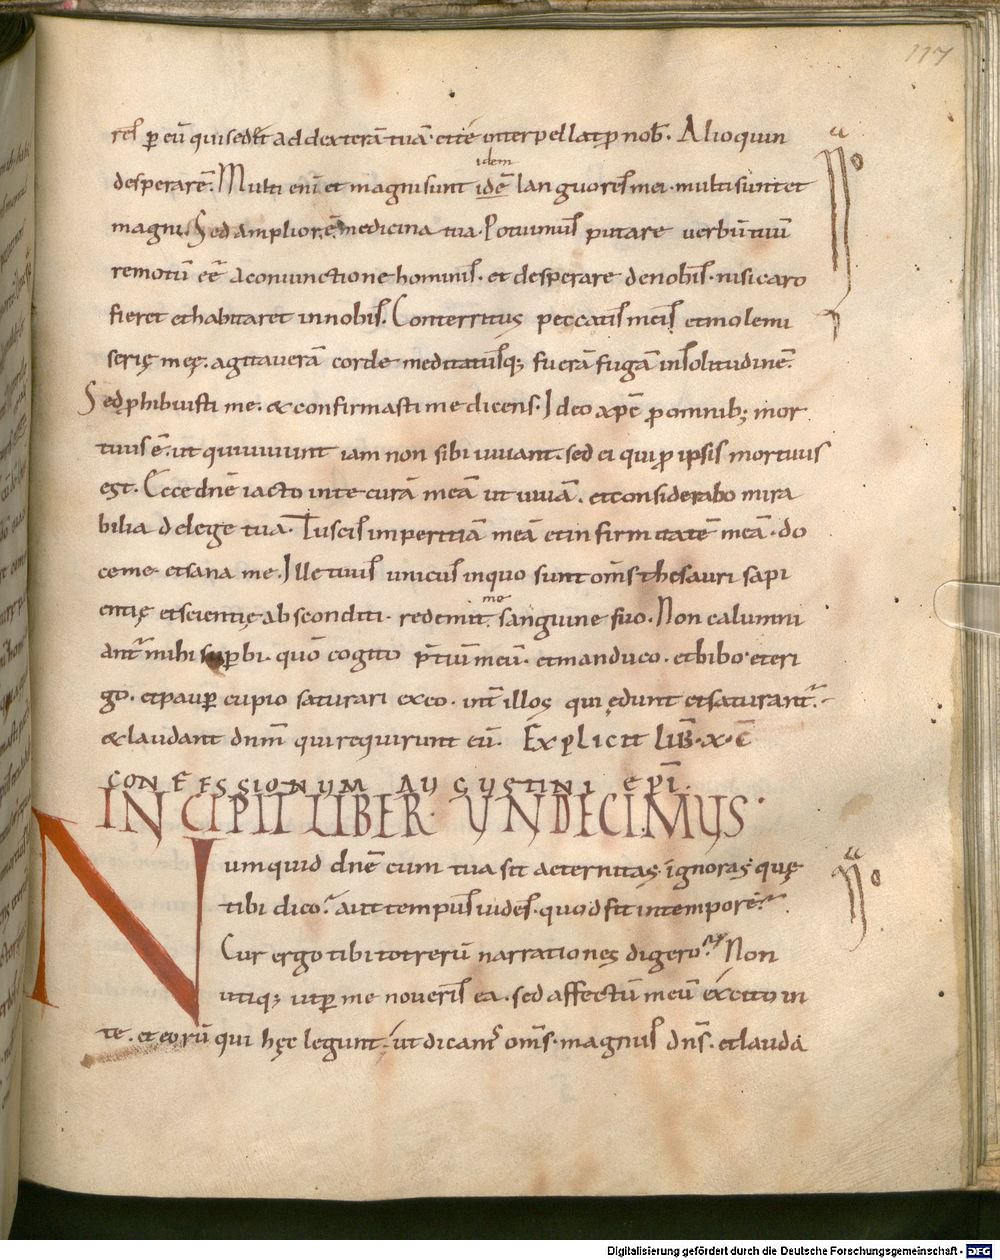 117
res p eū qui sedet ad dexterā tuā et te interpellat p nob. Alioquin
idem
desperarē. Multi eni et magni sunt idē languores mei. multi sunt et
magni. Sed amplior ē medicina tua. Potuimus putare verbū tuū
remotū eē a coniunctione hominis. et desperare de nobis. nisi caro
fieret et habitaret in nobis. Conterritus peccatis meis et mole mi
serię meę. agitaverā corde meditatusq; fuerā fugā in solitudinē.
Sed phibuisti me. & confirmasti me dicens. Ideo xpc p omnib; mor
tuus ē. ut qui vivunt iam non sibi vivant. sed ei qui p ipsis mortuus
est. Ecce dne iacto in te curā meā ut vivā. et considerabo mira
bilia de lege tua. Tu scis imperitiā meā et infirmitatē meā. do
ce me et sana me. Ille tuus unicus in quo sunt oms thesauri sapi
me
entię et scientię absconditi. redemit sanguine suo. Non calumni
ant mihi supbi. quō cogito ptiū meū. et manduco. et bibo et eri
go. et paup cupio saturari ex eo. int illos qui ędunt et saturant.
& laudant dnm qui requirunt eū. Explicit lib. x. C
CONFESSIONUM AUGUSTINI EPI.
INCIPIT LIBER UNDECIMUS.
Numquid dne cum tua sit aeternitas. ignoras quę
tibi dico. aut tempus vides. quod fit in tempore.
Cur ergo tibi tot rerū narrationes digero. Non
utiq; ut p me noveris ea. sed affectū meū excito in
te. et eorū qui hęc legunt. ut dicam oms. magnus dns. et lauda
Digitalisierung gefördert durch die Deutsche Forschungsgemeinschaft - DFG